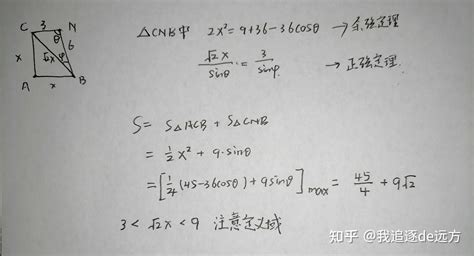 C 3 N
θ 6
x √2x φ
A x B
△CNB中 2x²=9+36-36cosθ → 余弦定理
√2x/sinθ = 3/sinφ → 正弦定理
S = S△ACB + S△CNB
= 1/2 x² + 9·sinθ
= [1/4(45-36cosθ)+9sinθ]max = 45/4 + 9√2
3 < √2x < 9 注意定义域
知乎 @我追逐de远方